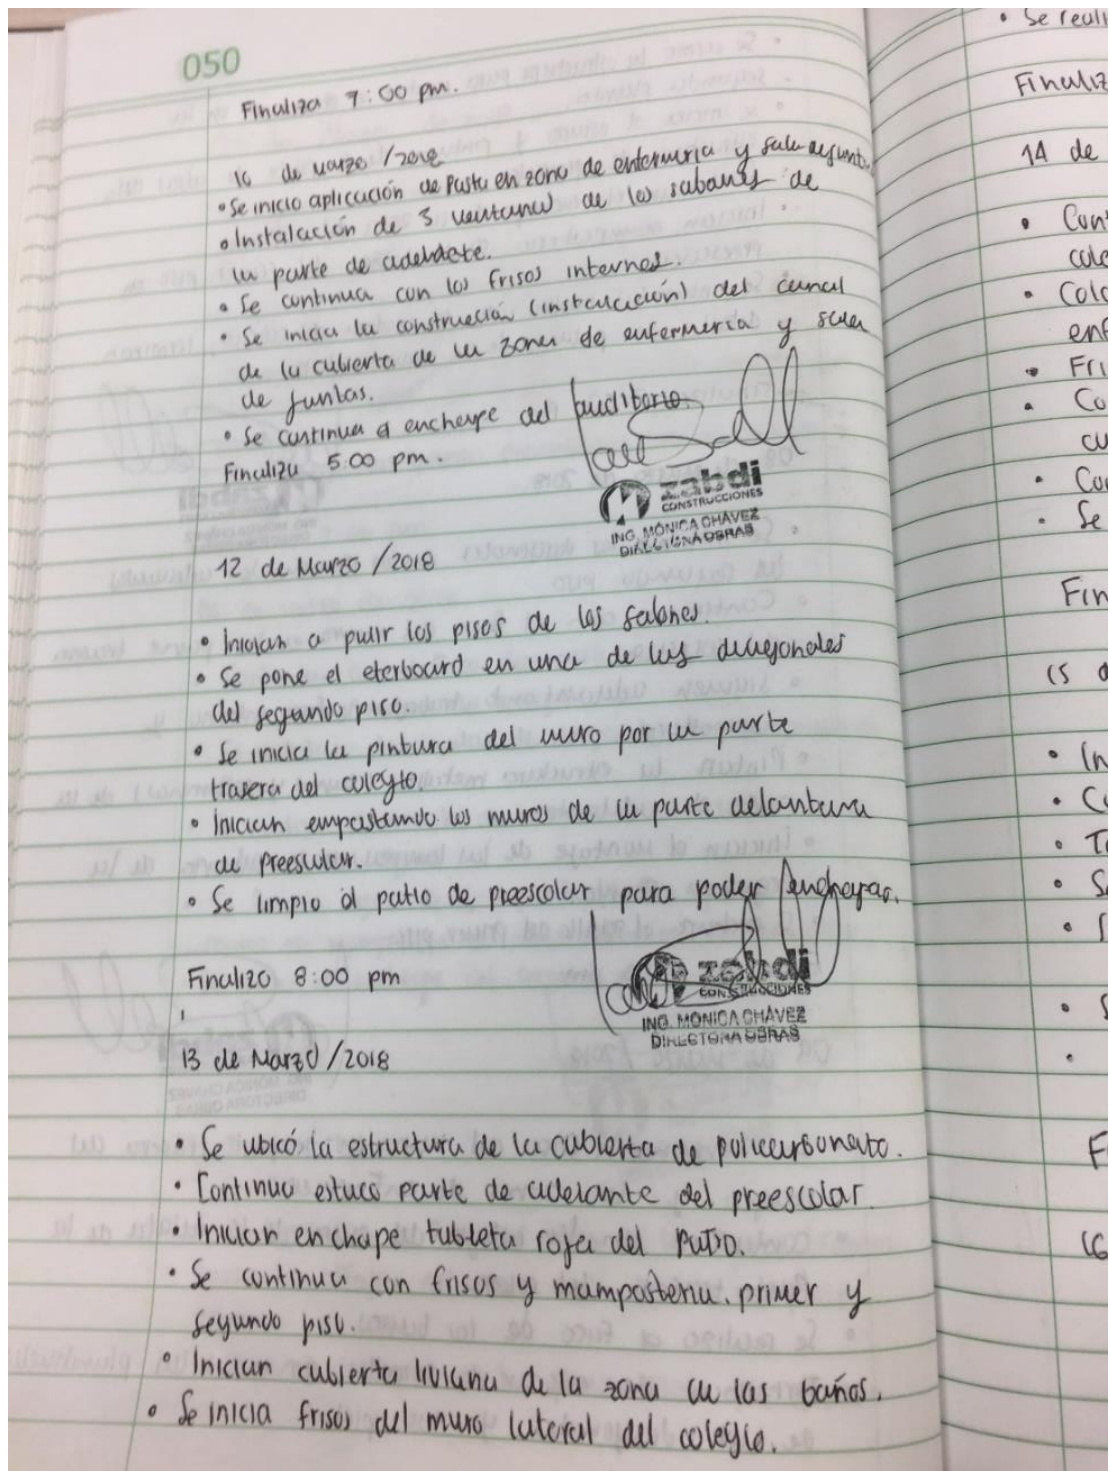 050
Finaliza 7:00 pm.
10 de marzo /2018
• Se inicio aplicación de Pasta en zona de enfermeria y sala de juntas.
• Instalación de 3 ventanas de los salones de
la parte de adelante.
• Se continua con los frisos internos.
• Se inicia la construcción (instalación) del canal
de la cubierta de la zona de enfermeria y sala
de juntas.
• Se continua el enchape del auditorio.
Finaliza 5:00 pm.
zabdi
CONSTRUCCIONES
ING. MÓNICA CHÁVEZ
DIRECTORA OBRAS
12 de Marzo /2018
• Inician a pulir los pisos de los salones.
• Se pone el eterboard en una de las diagonales
del segundo piso.
• Se inicia la pintura del muro por la parte
trasera del colegio.
• Inician empastando los muros de la parte delantera
de preescolar.
• Se limpio el patio de preescolar para poder enchapar.
Finalizo 8:00 pm
zabdi
CONSTRUCCIONES
ING. MONICA CHÁVEZ
DIRECTORA OBRAS
13 de Marzo /2018
• Se ubicó la estructura de la cubierta de policarbonato.
• Continuo estuco parte de adelante del preescolar.
• Inician enchape tableta roja del patio.
• Se continua con frisos y mamposteria. primer y
segundo piso.
• Inician cubierta liviana de la zona de las baños.
• Se inicia frisos del muro lateral del colegio.
• Se reali
Finaliz
14 de
• Con
cole
• Colo
enf
• Fri
• Co
cu
• Con
• Se
Fin
15 d
• In
• Co
• Ta
• Se
F
16